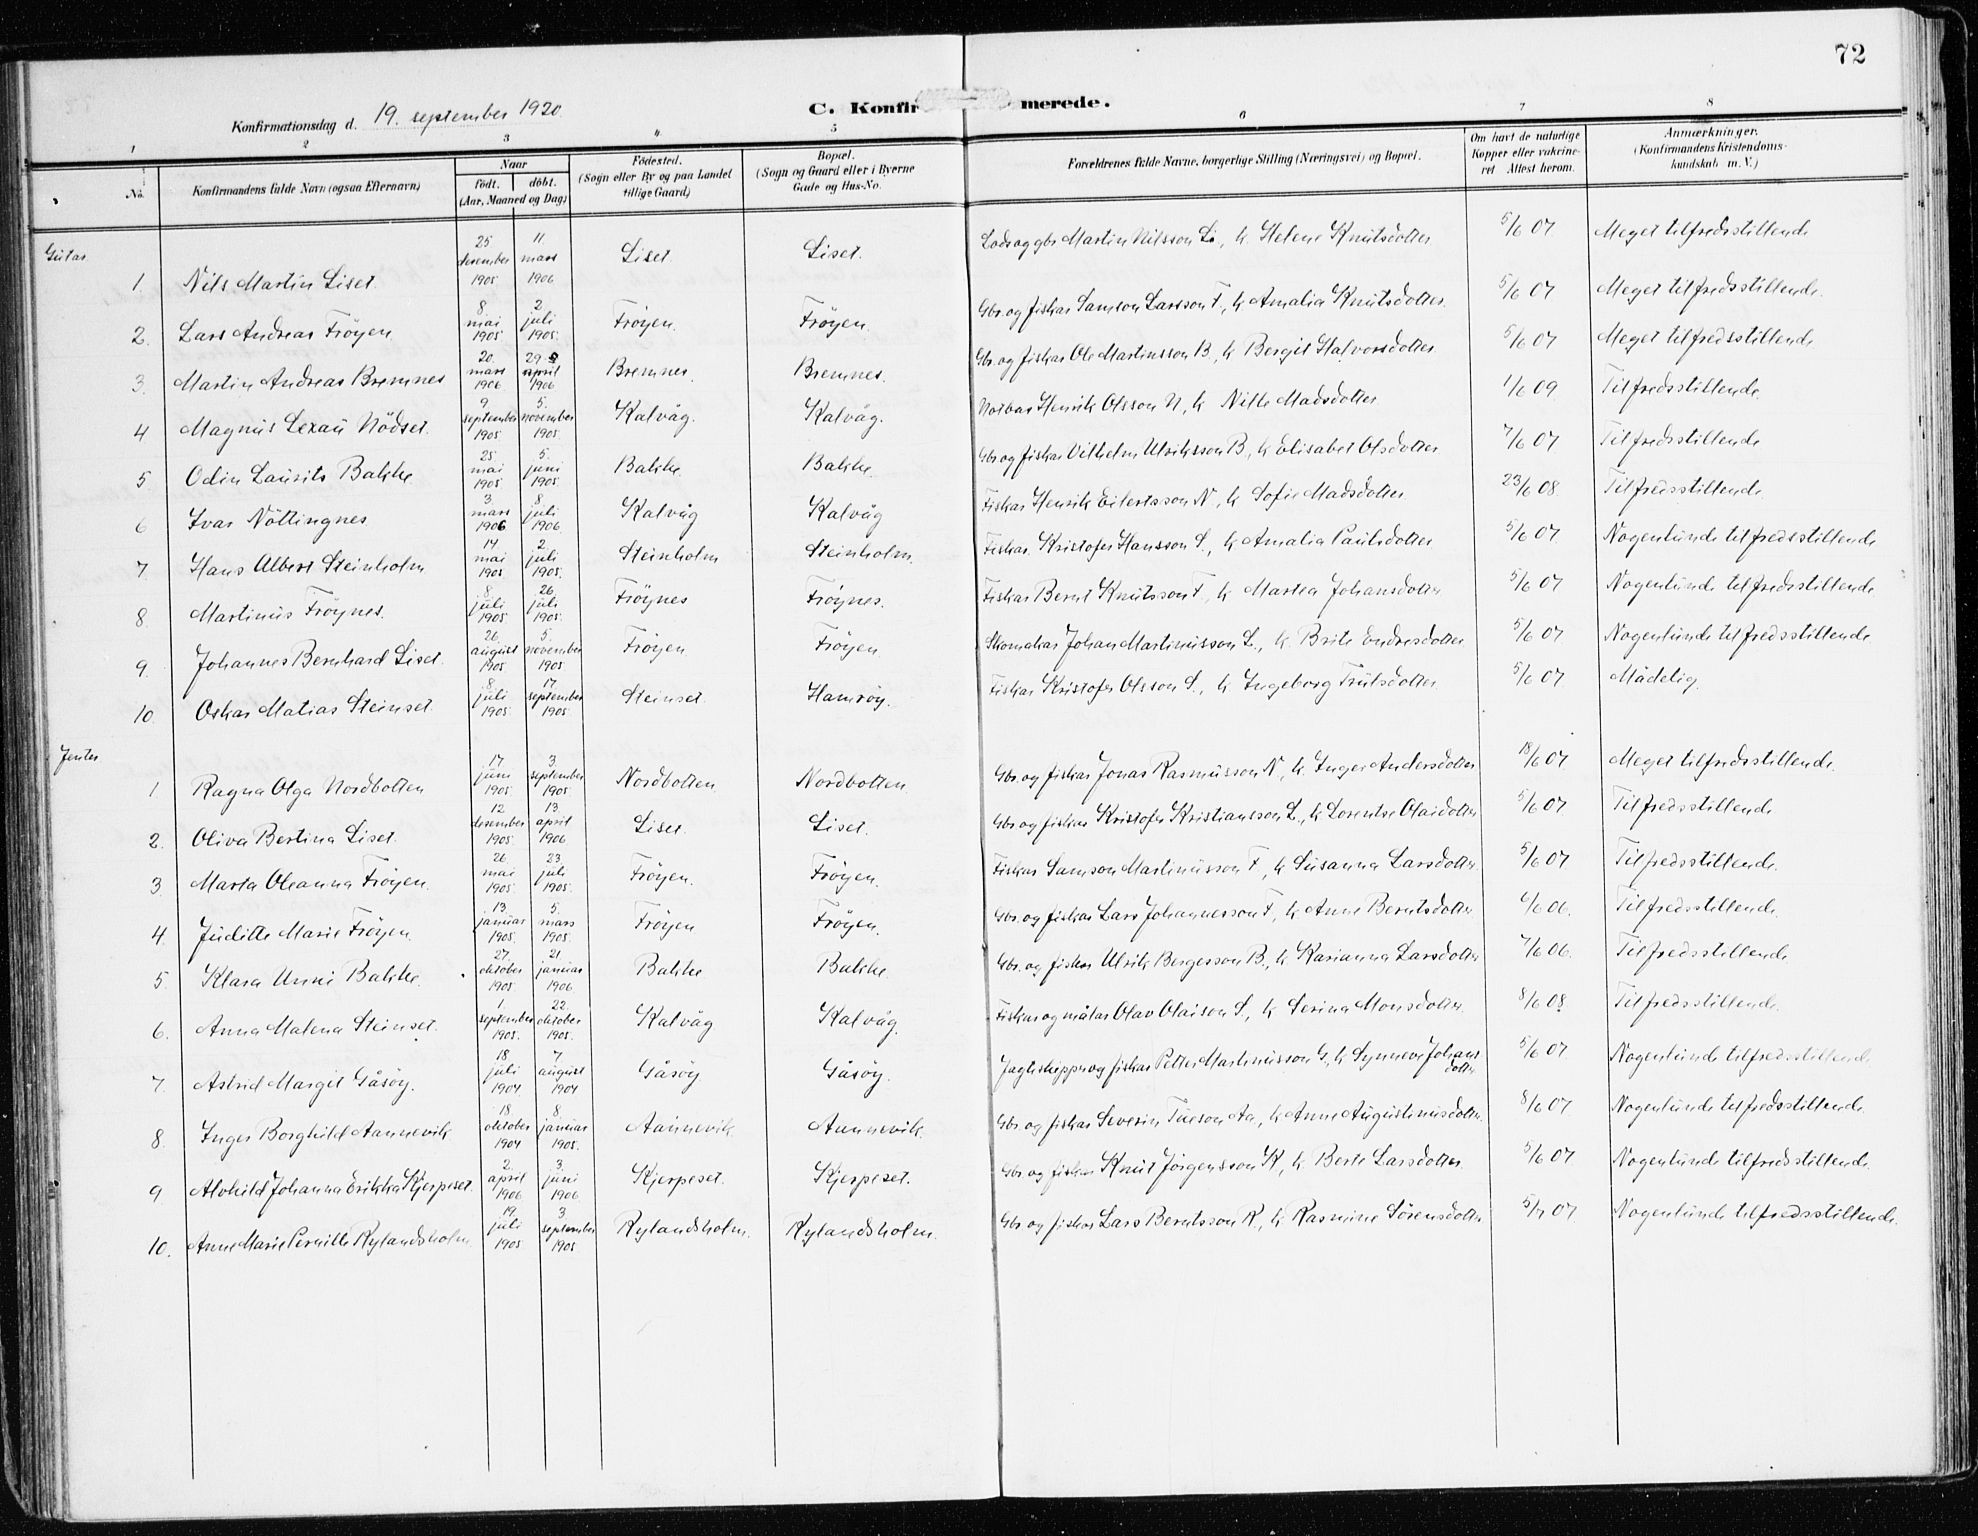 72
Konfirmationsdag d. 19. september 1920.
C. Konfir merede.
1 2 3 4 5 6 7 8
No. Konfirmandens fulde Navn (ogsaa Efternavn) Naar født. døbt. (Aar, Maaned og Dag) Fødested. (Sogn eller By og paa Landet tillige Gaard) Bopæl. (Sogn og Gaard eller i Byerne Gade og Hus-No. Forældrenes fulde Navne, borgerlige Stilling (Næringsvei) og Bopæl. Om havt de naturlige Kopper eller vakcineret Attest herom. Anmærkninger. (Konfirmandens Kristendomskundskab m. V.)
Gutar
1. Nils Martin Liset. 25 desember 1905 11. mars 1906 Liset. Liset. Lods og gbr Martin Nilsson Li., k. Helene Knutsdotter 5/6 07 Meget tilfredsstillende
2. Lars Andreas Fröyen 8. mai 1905 2. juli 1905. Fröyen. Fröyen. Gbr. og fiskar Samson Larsson F., k Amalia Knutsdotter. 5/6 07 Meget tilfredsstillende.
3. Martin Andreas Bremnes 20. mars 1906. 29 april 1906 Bremnes. Bremnes. Gbr. og fiskar Ole Martinsson B., k. Bergit Halvorsdotter 5/6 07 Meget tilfredsstillende
4 Magnus Lexau Nödset. 9. september 1905 5. november 1905. Kalvåg. Kalvåg. Notbas Henrik Olsson N, k Nille Madsdotter 1/6 09. Tilfredsstillende.
5 Odin Laurits Bakke 25 mai 1905 5. juni 1905. Bakke. Bakke. Gbr og fiskar Vilhelm Ulriksson B, k Elisabet Olsdotter 7/6 07 Tilfredsstillende
6 Ivar Nöttingnes 3 mars 1906 8. juli 1906. Kalvåg Kalvåg Fiskar Henrik Eilertsson N, k Sofie Madsdotter 23/6 08. Tilfredsstillende.
7. Hans Albert Steinholm 14. mai 1905. 2. juli 1905. Steinholm Steinholm. Fiskar. Kristofer Hansson S., k Amalia Paulsdotter 5/6 07. Nogenlunde tilfredsstillende
8. Martinus Fröynes. 8. juli 1905 26. juli 1905. Fröynes Fröynes. Fiskar Bernt Knutsson F, k Martea Johansdotter 5/6 07 Nogenlunde tilfredsstillende
9. Johannes Bernhard Liset. 26. august 1905. 5. november 1905 Fröyen Fröyen Skomakar Johan Martinusson L., k. Brite Endresdotter 5/6 07 Nogenlunde tilfredsstillende
10. Oskar Matias Steinset. 8. juli 1905. 17. september 1905. Steinset. Hamröy. Fiskar Kristofer Olsson S., k Ingeborg Trulsdotter 5/6 07 Mådelig.
Jenter
1 Ragna Olga Nordbotten 17. juni 1905 3. september 1905. Nordbotten. Nordbotten. Gbr. og fiskar Jonas Rasmusson N, k. Inger Andersdotter 18/6 07 Meget tilfredsstillende.
2. Oliva Bertina Liset. 12 desember 1905. 13. april 1906 Liset. Liset. Gbr og fiskar Kristofer Kristiansson L., k Lorentse Olaidotter 5/6 07 Tilfredsstillende
3 Marta Oleanna Fröyen. 26. mai 1905. 23. juli 1905. Fröyen. Fröyen. Fiskar Samson Martinusson F, k Susanna Larsdotter. 5/6 07 Tilfredsstillende.
4. Juditte Marie Fröyen. 13. januar 1905. 5. mars 1905. Fröyen Fröyen. Gbr. og fiskar Lars Johannesson F, k Anne Berntsdotter 6/6 06. Tilfredsstillende.
5. Klara Unni Bakke. 27. oktober 1905 21. januar 1906. Bakke Bakke. Gbr. og fiskar Ulrik Bergesson B., k Karianna Larsdotter 7/6 06. Tilfredsstillende
6. Anna Malena Steinset. 1. september 1905. 22. oktober 1905. Kalvåg Kalvåg. Fiskar og målar Olav Olaison S., k Serina Monsdotter. 8/6 08. Tilfredsstillende.
7. Astrid Margit Gåsöy. 18. juli 1904. 7. august 1904 Gåsöy Gåsöy. Jagtskipper og fiskar Petter Martinusson G., k Synneve Johansdotter 5/6 07. Nogenlunde tilfredsstillende
8. Inger Borghild Aannevik 18. oktober 1904 8. januar 1905. Aannevik. Aannevik. Gbr. og fiskar Severin Tueson Aa, k Anne Augustinusdotter. 8/6 07. Nogenlunde tilfredsstillende.
9 Alvhild Johanna Erikka Kjerpeset. 2. april 1906 3. juni 1906 Kjerpeset. Kjerpeset. Gbr. og fiskar Knut Jörgensson K, k. Berte Larsdotter. 5/6 07 Nogenlunde tilfredsstillende.
10. Anne Marie Pernille Rylandsholm. 19. juli 1905 3 september 1905. Rylandsholm. Rylandsholm. Gbr og fiskar Lars Berntsson R, k Rasmine Sörensdotter 5/7 07 Nogenlunde tilfredsstillende.